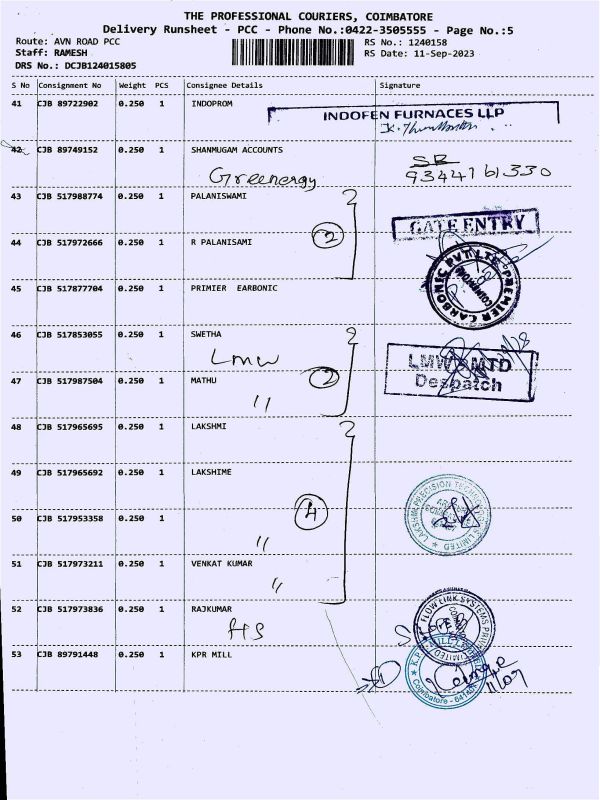 THE PROFESSIONAL COURIERS, COIMBATORE
Delivery Runsheet - PCC - Phone No.:0422-3505555 - Page No.:5
Route: AVN ROAD PCC
RS No.: 1240158
Staff: RAMESH
RS Date: 11-Sep-2023
DRS No.: DCJB124015805
S No Consignment No Weight PCS Consignee Details Signature
41 CJB 89722902 0.250 1 INDOPROM
INDOFEN FURNACES LLP
42 CJB 89749152 0.250 1 SHANMUGAM ACCOUNTS
SR
Greenergy
9344161330
43 CJB 517988774 0.250 1 PALANISWAMI
GATE ENTRY
44 CJB 517972666 0.250 1 R PALANISAMI
2
PREMIER CARBONIC PVT LTD
COIMBATORE
45 CJB 517877704 0.250 1 PRIMIER EARBONIC
46 CJB 517853055 0.250 1 SWETHA
LMW
LMW MTD
Despatch
47 CJB 517987504 0.250 1 MATHU
2
"
48 CJB 517965695 0.250 1 LAKSHMI
49 CJB 517965692 0.250 1 LAKSHIME
LAKSHMI PRECISION TECHNOLOGIES LIMITED
50 CJB 517953358 0.250 1
4
"
51 CJB 517973211 0.250 1 VENKAT KUMAR
"
52 CJB 517973836 0.250 1 RAJKUMAR
FLOW LINK SYSTEMS PRIVATE LIMITED
53 CJB 89791448 0.250 1 KPR MILL
K.P.R. MILL LIMITED
Coimbatore - 641407